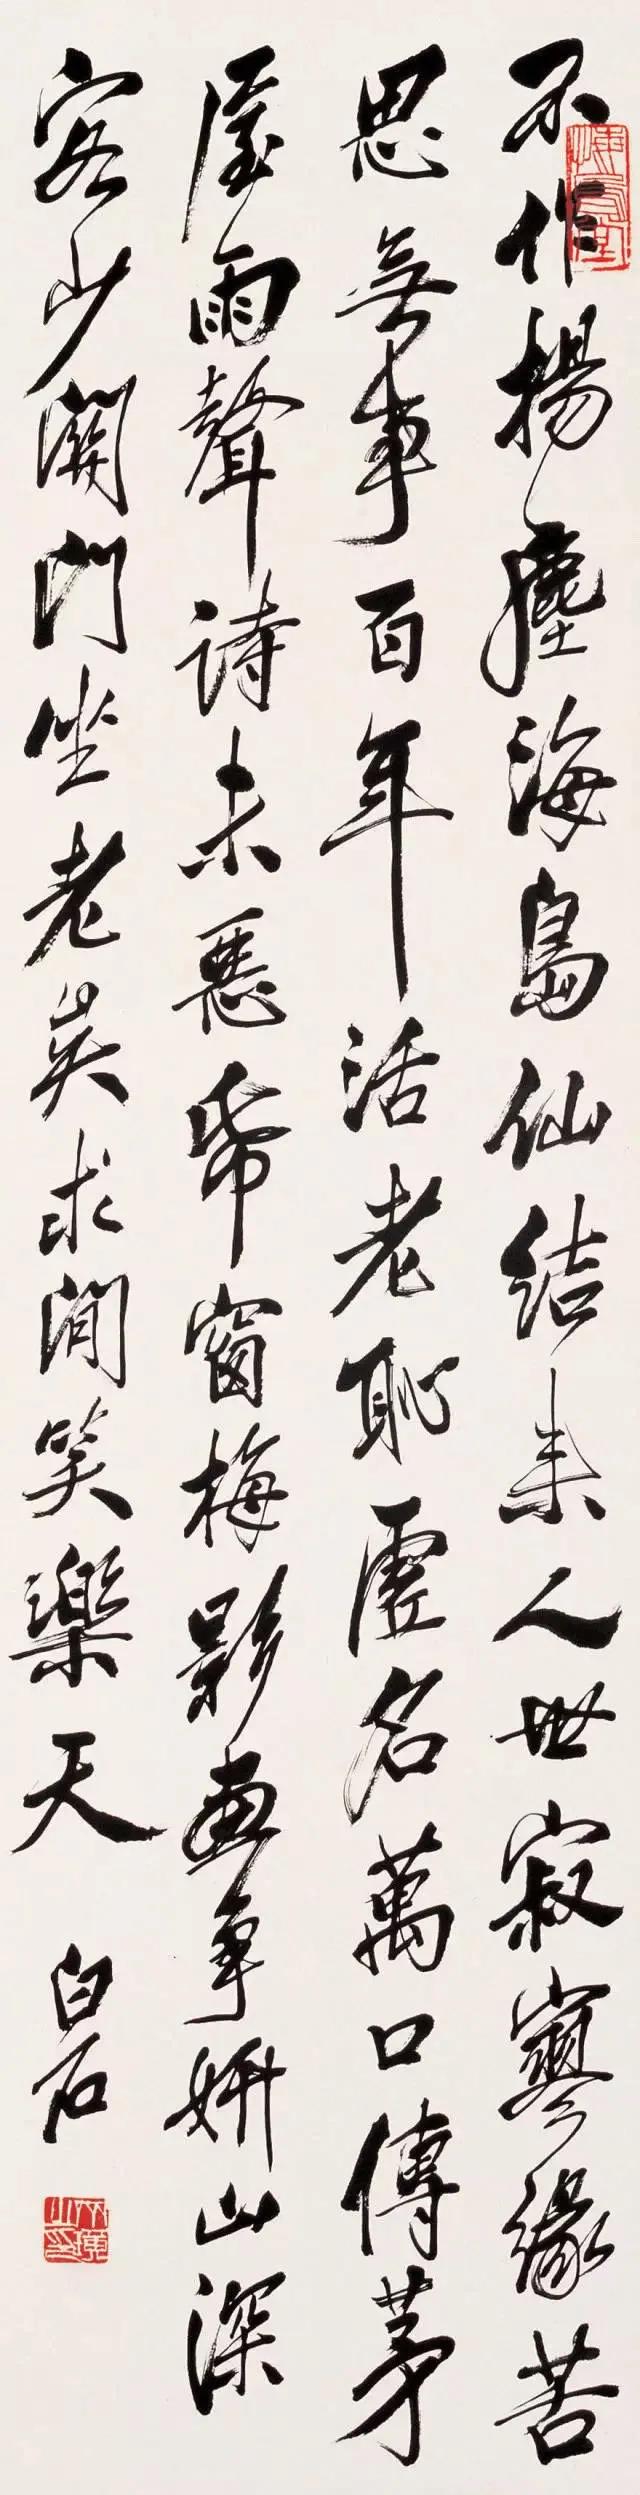 不作揚塵海島仙結來人世寂寥緣苦
思無事百年活老恥虛名萬口傳茅
屋雨聲詩未惡帋窗梅影畫爭妍山深
客少關門坐老矣求閒笑樂天
白石
悔烏堂